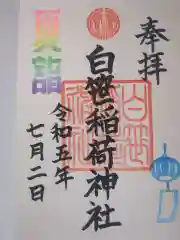 奉拝
白笹稲荷神社
夏詣
令和五年
七月二日